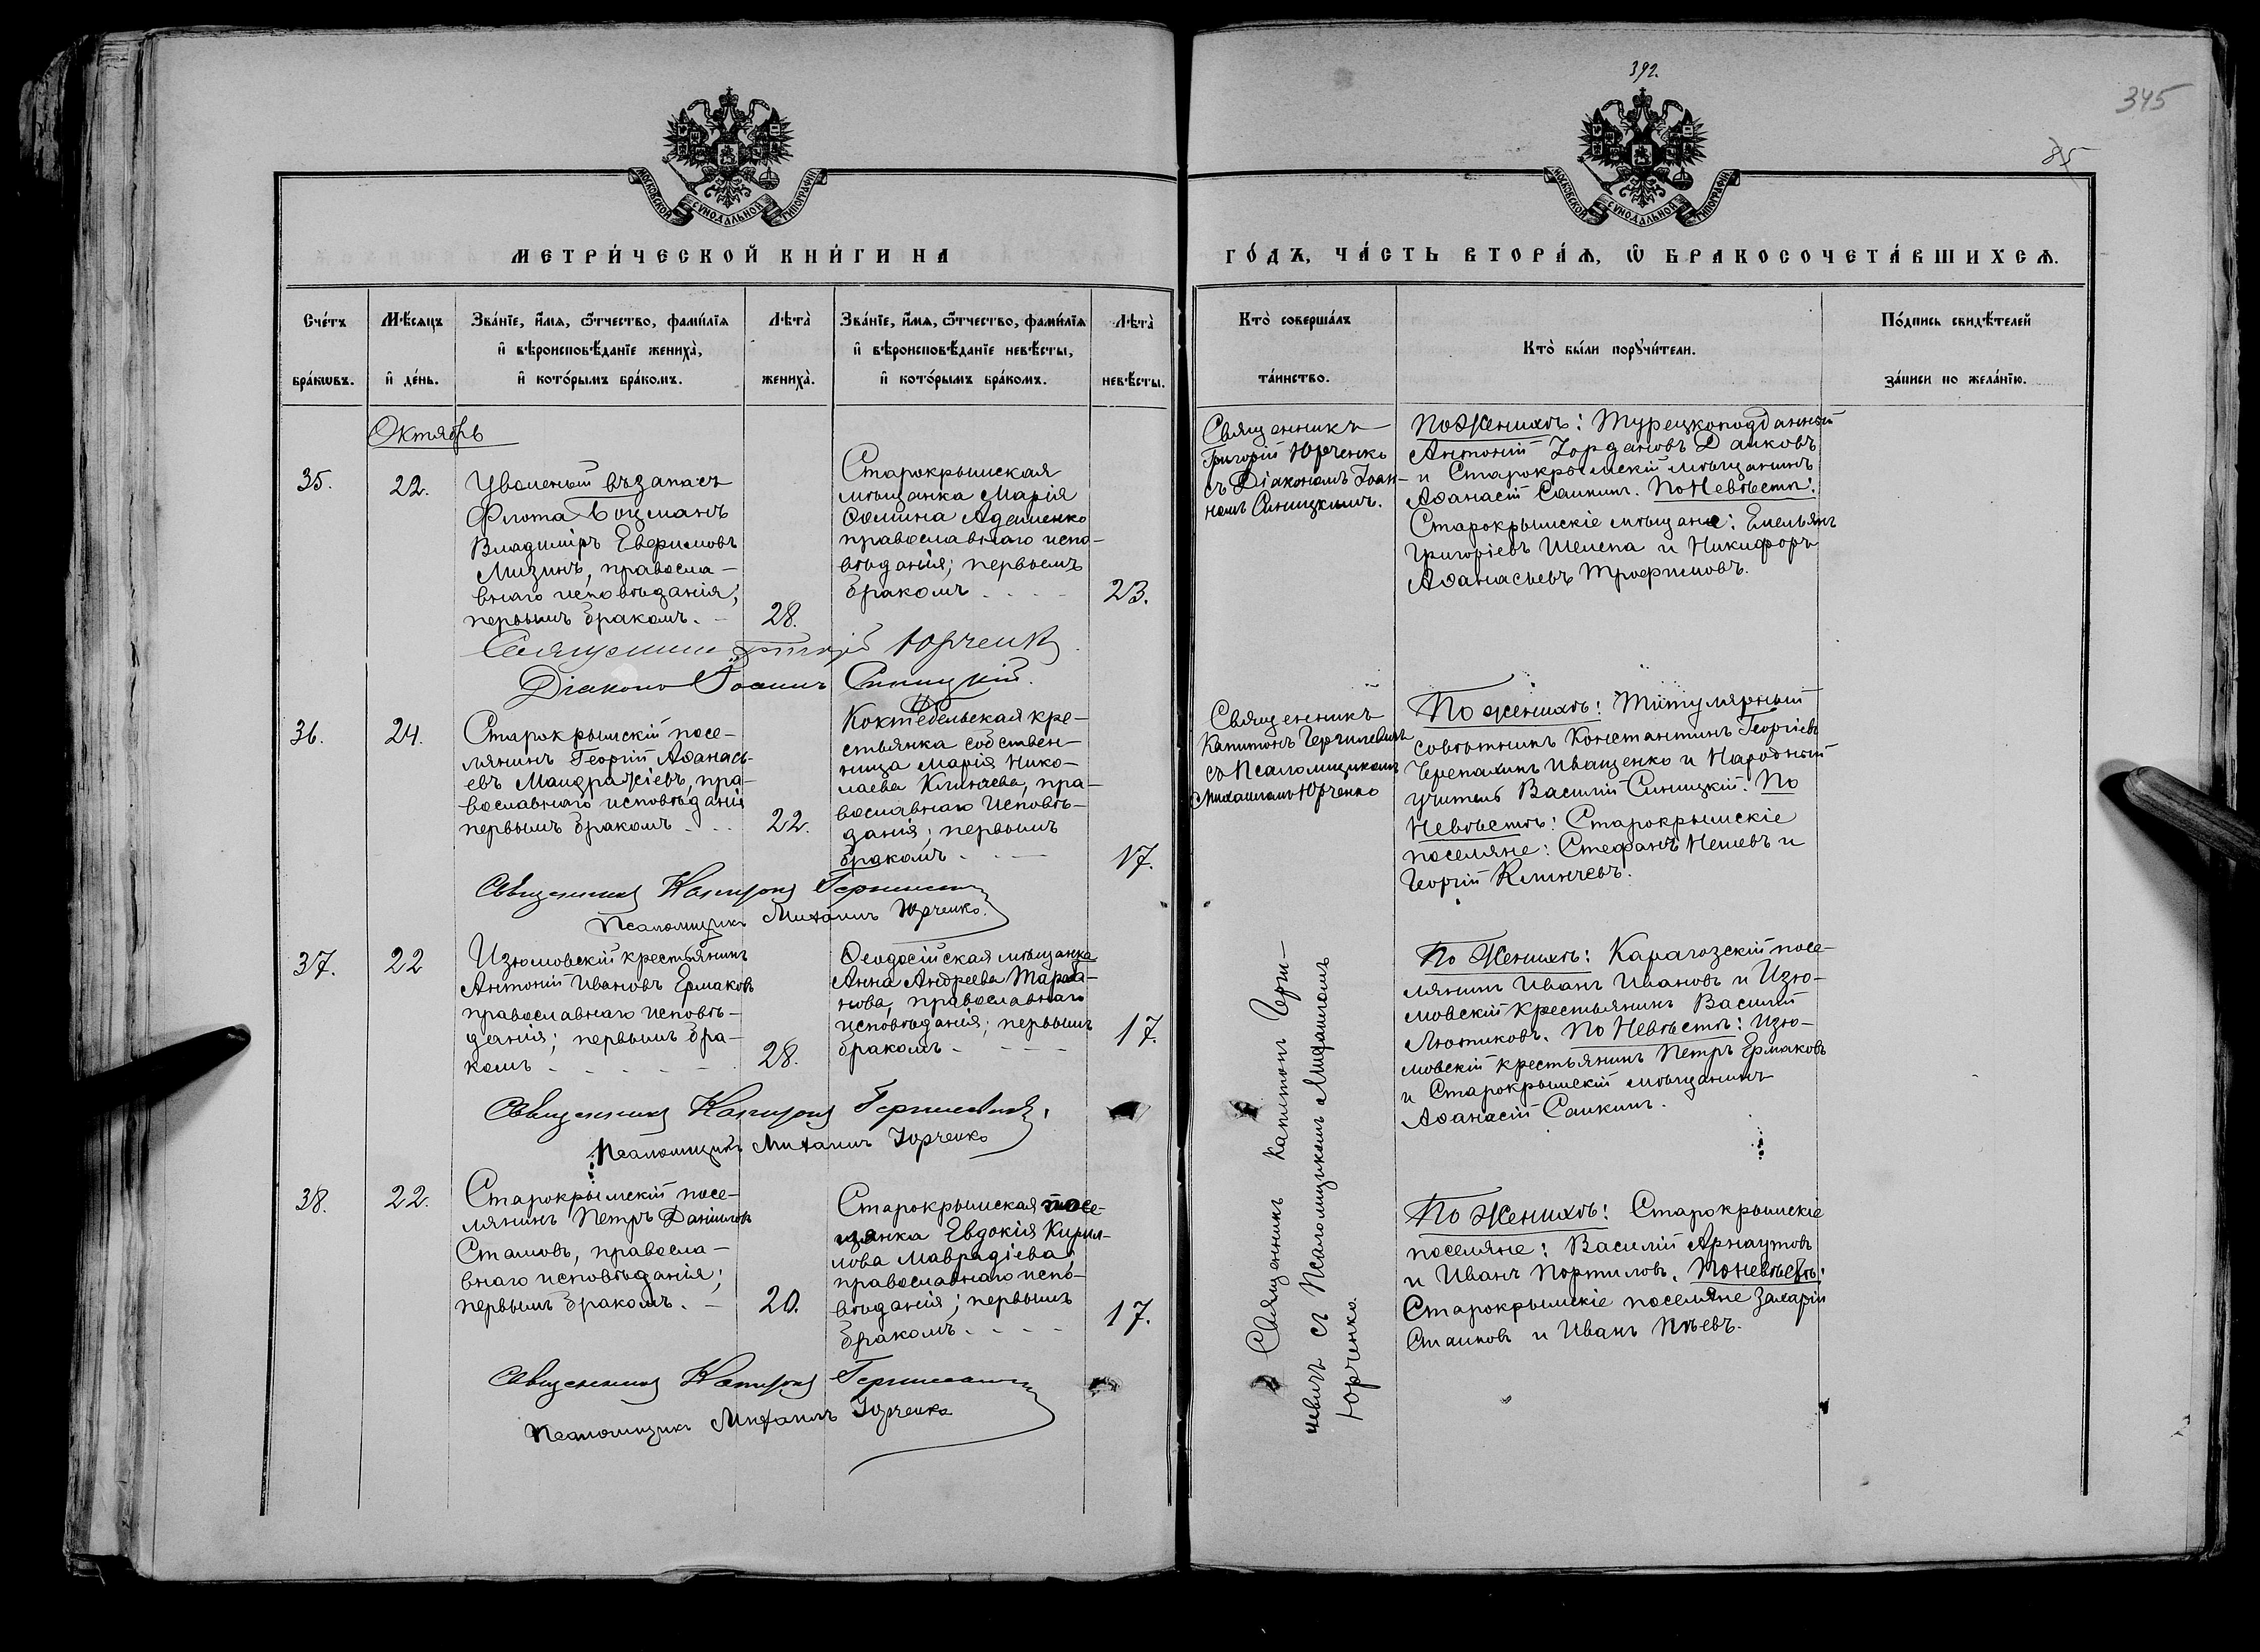 392.
345
85
МОСКОВСКОЙ СѴНОДАЛЬНОЙ ТИПОГРАФІИ
МОСКОВСКОЙ СѴНОДАЛЬНОЙ ТИПОГРАФІИ
МЕТРИ́ЧЕСКОЙ КНИ́ГИ НА
ГО́ДЪ, ЧА́СТЬ ВТОРА́Ѧ, Ѡ҆ БРАКОСОЧЕТА́ВШИХСѦ.
Сче́тъ
бра́кѡвъ.
Мѣ́сяцъ
и҆ де́нь.
Зва́нїе, и҆́мѧ, ѻ҆́тчество, фами́лїѧ
и҆ вѣроисповѣ́данїе жениха̀,
и҆ кото́рымъ бра́комъ.
Лѣта̀
жениха̀.
Зва́нїе, и҆́мѧ, ѻ҆́тчество, фами́лїѧ
и҆ вѣроисповѣ́данїе невѣ́сты,
и҆ кото́рымъ бра́комъ.
Лѣта̀
невѣ́сты.
Кто̀ соверша́лъ
та́инство.
Кто̀ бы́ли порꙋчи́тели.
По́дпись свидѣ́телей
за́писи по жела́нїю.
Октябрь
35.
22.
Уволеный въ запасъ
Флота Боцманъ
Владиміръ Евфимовъ
Мизинъ, правосла-
внаго исповѣданія;
первымъ бракомъ. -
28.
Старокрымская
мѣщанка Марія
Ѳомина Адаменко
православнаго испо-
вѣданія; первымъ
бракомъ . - - -
23.
Священникъ
Григорій Юрченко
съ Діакономъ Іоан-
номъ Синицкимъ.
По Женихѣ: Турецкоподданный
Антоній Іордановъ Данковъ
и Старокрымскій мѣщанинъ
Аѳанасій Салкинъ. По Невѣстѣ:
Старокрымскіе мѣщане: Емельянъ
Григоріевъ Шелепа и Никифоръ
Аѳанасьевъ Трофимовъ.
Священникъ Григорій Юрченко
Діаконъ Іоаннъ Синицкій.
36.
24.
Старокрымскій посе-
лянинъ Георгій Аѳанась-
евъ Мандражіевъ, пра-
вославнаго исповѣданія
первымъ бракомъ . . .
22.
Коктебельская кре-
стьянка собствен-
ница Марія Нико-
лаева Клинчева, пра-
вославнаго исповѣ-
данія; первымъ
бракомъ . . -
17.
Священникъ
Капитонъ Герчилевичъ
съ Псаломщикомъ
Михаиломъ Юрченко
По женихѣ: Титулярный
совѣтникъ Константинъ Георгіевъ
Черепахинъ Иващенко и Народный
учитель Василій Синицкій. По
Невѣстѣ: Старокрымскіе
поселяне: Стефанъ Нешевъ и
Георгій Клинчевъ.
Священникъ Капитонъ
Псаломщикъ Михаилъ Юрченко.
37.
22
Изюмовскій крестьянинъ
Антоній Ивановъ Ермаковъ
православнаго исповѣ-
данія; первымъ бра-
комъ - - - - -
28.
Ѳеодосійская мѣщанка
Анна Андреева Тарата-
нова, православнаго
исповѣданія; первымъ
бракомъ - - - -
17.
По Женихѣ: Карагозскій посе-
лянинъ Иванъ Ивановъ и Изю-
мовскій крестьянинъ Василій
Лютиковъ. По Невѣстѣ: Изю-
мовскій крестьянинъ Петръ Ермаковъ
и Старокрымскій мѣщанинъ
Аѳанасій Салкинъ.
Священникъ Капитонъ
Псаломщикъ Михаилъ Юрченко
38.
22.
Старокрымскій посе-
лянинъ Петръ Даниловъ
Стамовъ, правосла-
внаго исповѣданія;
первымъ бракомъ. -
20.
Старокрымская посе-
лянка Евдокія Кирил-
лова Мавродіева
православнаго испо-
вѣданія; первымъ
бракомъ. - - -
17.
Священникъ Капитонъ Герчи-
левичъ съ Псаломщикомъ Михаиломъ
Юрченко.
По Женихѣ: Старокрымскіе
поселяне: Василій Арнаутовъ
и Иванъ Портиловъ. По невѣстѣ:
Старокрымскіе поселяне Захарій
Станковъ и Иванъ Пѣевъ.
Священникъ Капитонъ
Псаломщикъ Михаилъ Юрченко